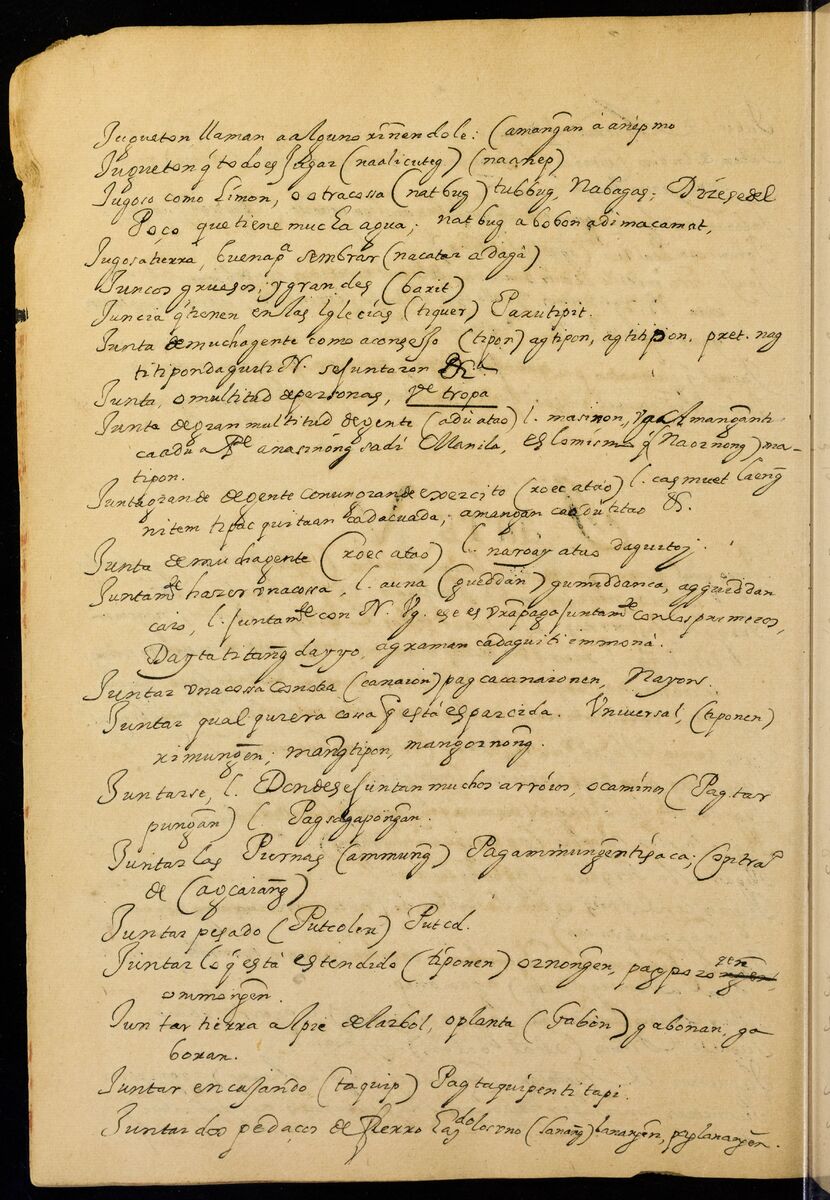 Jugueton llaman a alguno riñendole: (amang̃an a anep mo
Jugueton q̃ todo es jugar (naalicuteg) (naanep)
Jugoso como Limon, o otra cossa (natbug) tubbug, Nabagas; Dizese del
Poço que tiene mucha agua; natbug a bobon adi macamat,
Jugosa tierra, buena pª sembrar (nacatai a daga)
Juncos gruesos, y grandes (barit)
Juncia q̃ tienen en las Iglecias (tiquer) Parutipit.
Junta de mucha gente como a consejo (tipon) agtipon, agtitipon, pret. nag
titipon daguiti N. se juntaron
Junta, o multitud de personas, Vde tropa
Junta de gran multitud de gente (adu a tao) l. masinon, amang̃anti
caadu a anasinong̃ sadi Manila, es lo mismo q̃ (Naornong) ma-
tipon.
Junta grande de gente como un grande exercito (roec a tao) l. casmuet laeng̃
nitem tipac quitaan cadacuada, amang̃an caadu ti tao &.
Junta de mucha gente (roec a tao) l. naroay a tao daguitoj.
Juntamte hazer vna cossa, l. a una (gueddan) gumiddanca, aggueddan
caio, l. juntamte con N. Vg. ese es vra paga juntamte con los primeros,
Dayta ti tang̃dayyo, agraman cadaguiti immona.
Juntar vna cossa con otra (canaion) pagcacanaionen, Nayon.
Juntar qual quiera cossa q̃ està esparcida. Vniversal, (tiponen)
rimung̃en; mang̃tipon, mang̃ornong̃.
Juntarse, l. Donde se juntan muchos arroios, o caminos (Pagtar
pung̃an) l. Pagsagapong̃an.
Juntar las Piernas (ammung̃) Pagammung̃en ti saca; Contraº
de (agcaiang̃)
Juntar pesado (Putcolen) Putcol.
Juntar lo q̃ està estendido (tiponen) ornong̃en, pagporogen
ommong̃en.
Juntar tierra al pie del arbol, o planta (Gabòn) gabonan, ga
boran.
Juntar encajando (taquip) Pagtaquipen ti tapi.
Juntar dos pedaços de fierro hasdolos vno (Lanang̃) lanang̃en, paglanang̃en.